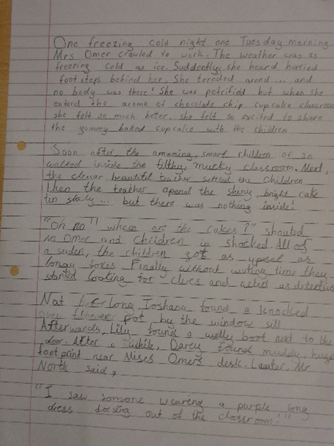 One freezing cold night one Tuesday morning.
Mrs Omer crawled to work. The weather was as
freezing cold as ice. Suddently she heard hurried
foot steps behind her. She turned arond ... and
no body was there! She was petrified but when she
enterd the aroma of chocolate chip cupcake classroom
she felt so much beter. she felt so excited to share
the yummy baked cupcake with the children
Soon after, the amaming, smart children of 20
walked inside the filthy, mucky classroom. Next,
the clever beautful teacher settled the children.
Then the teather opend the shiny bright cake
tin slowly ... but there was nothing inside!
"Oh no" where are the cakes?" shouted
in Omer and children in shocked. All of
a suden, the children got as upset as
longly foxes. Finally without wating time they
started looting for clues and acted as detectives
Not before long Joshana found a knocked
over flower pot by the window sill
Afterwards, Lily found a welly boot next to the
door. After a while, Darcy found muddy, huge
footprint near Mises Omers desk. Leater, Mr
North said,
"I saw somone wearing a purple long
dress dosing out of the classroom!"